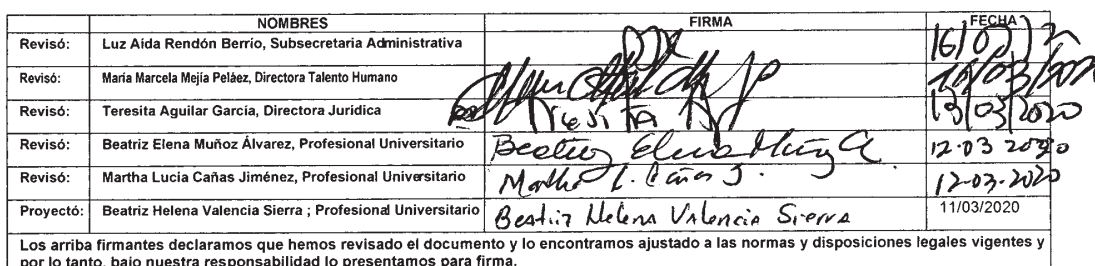 NOMBRES FIRMA FECHA
Revisó: Luz Aida Rendón Berrío, Subsecretaria Administrativa
Revisó: María Marcela Mejía Peláez, Directora Talento Humano
Revisó: Teresita Aguilar García, Directora Jurídica 13/03/2020
Revisó: Beatriz Elena Muñoz Álvarez, Profesional Universitario Beatriz Elena Muñoz A. 12-03 2020
Revisó: Martha Lucía Cañas Jiménez, Profesional Universitario Martha L. Cañas J. 12-03-2020
Proyectó: Beatriz Helena Valencia Sierra ; Profesional Universitario Beatriz Helena Valencia Sierra 11/03/2020
Los arriba firmantes declaramos que hemos revisado el documento y lo encontramos ajustado a las normas y disposiciones legales vigentes y
por lo tanto, bajo nuestra responsabilidad lo presentamos para firma.